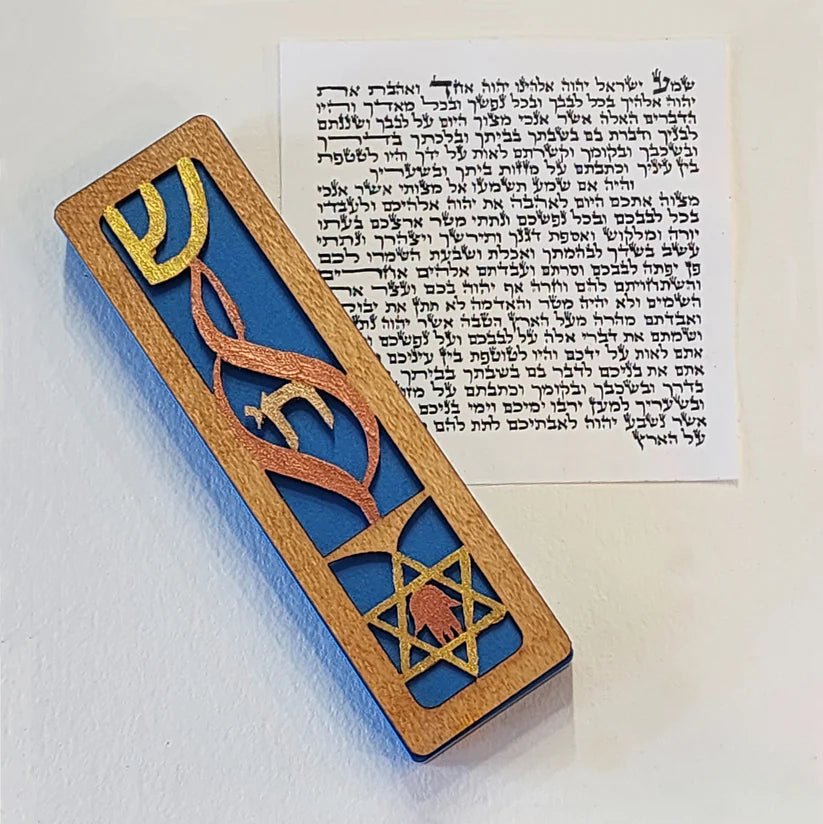 שמע ישראל יהוה אלהינו יהוה אחד ואהבת את
יהוה אלהיך בכל לבבך ובכל נפשך ובכל מאדך והיו
הדברים האלה אשר אנכי מצוך היום על לבבך ושננתם
לבניך ודברת בם בשבתך בביתך ובלכתך בדרך
ובשכבך ובקומך וקשרתם לאות על ידך והיו לטטפת
בין עיניך וכתבתם על מזזות ביתך ובשעריך
והיה אם שמע תשמעו אל מצותי אשר אנכי
מצוה אתכם היום לאהבה את יהוה אלהיכם ולעבדו
בכל לבבכם ובכל נפשכם ונתתי מטר ארצכם בעתו
יורה ומלקוש ואספת דגנך ותירשך ויצהרך ונתתי
עשב בשדך לבהמתך ואכלת ושבעת השמרו לכם
פן יפתה לבבכם וסרתם ועבדתם אלהים אחרים
והשתחויתם להם וחרה אף יהוה בכם ועצר את
השמים ולא יהיה מטר והאדמה לא תתן את
ואבדתם מהרה מעל הארץ הטבה אשר יהוה
ושמתם את דברי אלה על לבבכם ועל נפשכם
אתם לאות על ידכם והיו לטוטפת בין עיניכם
אתם את בניכם לדבר בם בשבתך בביתך
בדרך ובשכבך ובקומך וכתבתם על
ובשעריך למען ירבו ימיכם וימי בניכם
אשר נשבע יהוה לאבתיכם לתת להם
על הארץ
ש
חי